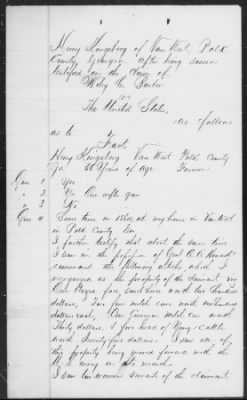 Henry Kingsbery of Van Wert, Polk
County, Georgia after being sworn
testified in the claim of
Wiley C. Barber
vs
The United States,
as follows
as to
Facts
Henry Kingsbery Van Wert Polk County
Ga 56 Years of age Farmer
Ques 1 Yes
" 2 Yes One rifle gun
" 3 No
Ques 4 Some time in 1864, at my home in Van Wert
in Polk County Ga
I further testify that about the same time
I saw in the possession of Genl O. O. Howard's
command the following articles which I
recognized as the property of the claimant viz
One Horse, worth two hundred
dollars, Two fine milch cows worth
dollars each, One young milch cow worth
Thirty dollars, head of Young Cattle
worth Twenty five dollars. I saw all of
this property being moved forward with the
U. S. army on the march.
I saw servants of the claimant